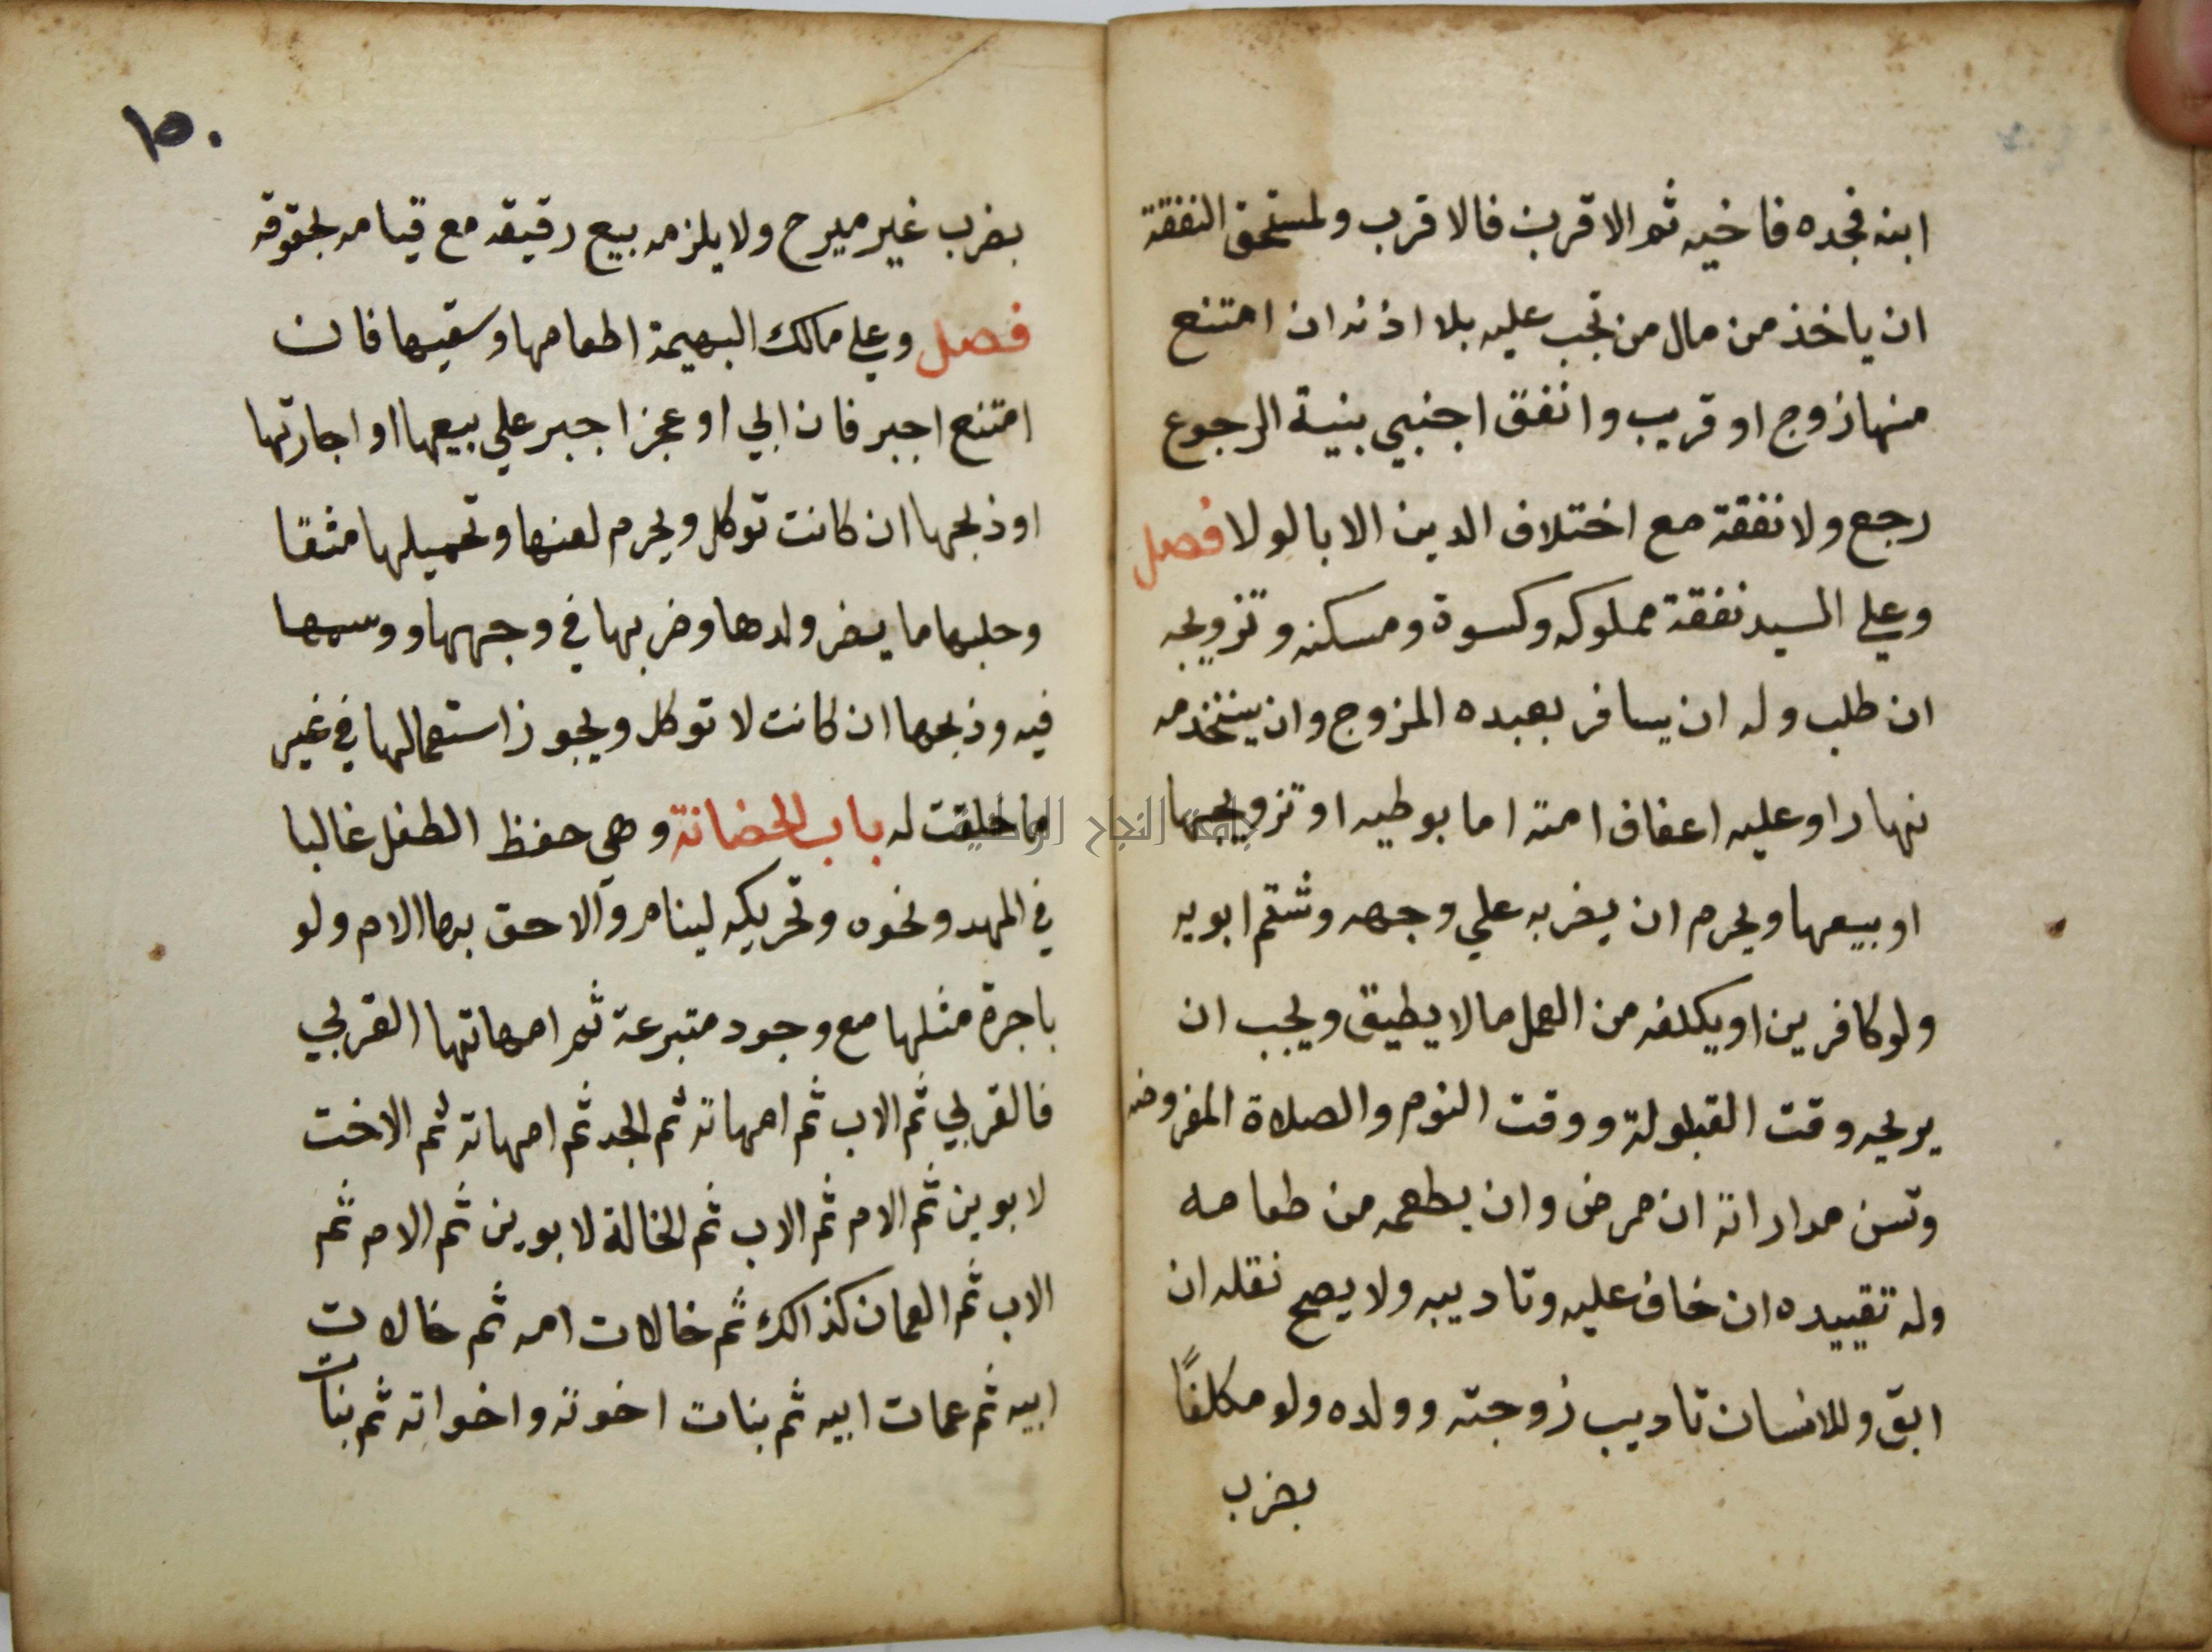 ابنه فجده فاخيه ثم الاقرب فالاقرب ولمستحق النفقة
ان ياخذ من مال من تجب عليه بلا اذنه ان امتنع
منها زوج او قريب وانفق اجنبي بنية الرجوع
رجع ولا نفقة مع اختلاف الدين الا بالولا فصل
وعلي السيد نفقة مملوكه وكسوة ومسكنه وتزويجه
ان طلب وله ان يسافر بعبده المزوج وان يستخدمه
نهارا وعليه اعفاف امته اما بوطيه او تزويجها
او بيعها ويحرم ان يضربه علي وجهه وشتم ابويه
ولو كافرين او يكلفه من العمل ما لا يطيق ويجب ان
يريحه وقت القيلولة ووقت النوم والصلاة المفروضه
وتسن مداراته ان مرض وان يطعمه من طعامه
وله تقييده ان خاف عليه وتاديبه ولا يصح نفله ان
ابق وللانسان تاديب زوجته وولده ولو مكلفًا
بضرب
١٥٠
بضرب غير مبرح ولا يلزمه بيع رقيقه مع قيامه بحقوقه
فصل وعلي مالك البهيمة اطعامها وسقيها فان
امتنع اجبر فان ابي او عجز اجبر علي بيعها او اجارتها
او ذبحها ان كانت توكل ويحرم لعنها وتحميلها مشقا
وحلبها ما يضر ولدها وضربها في وجهها ووسمها
فيه وذبحها ان كانت لا توكل ويجوز استعمالها في غير
ما خلقت له باب الحضانة وهي حفظ الطفل غالبا
في المهد ونحوه وتحريكه لينام والاحق بها الام ولو
باجرة مثلها مع وجود متبرعة ثم امهاتها القربي
فالقربي ثم الاب ثم امهاته ثم الجد ثم امهاته ثم الاخت
لابوين ثم الام ثم الاب ثم الخالة لابوين ثم الام ثم
الاب ثم العمات كذالك ثم خالات امه ثم خالات
ابيه ثم عمات ابيه ثم بنات اخوته واخواته ثم بنات
جامعة النجاح الوطنية